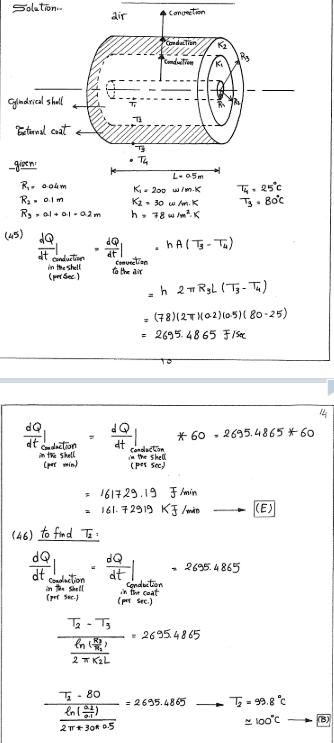 Solution:-
air
convection
conduction
conduction
K2
K1
R3
R1
R2
Cylindrical shell
External coat
T1
T2
T3
T4
L = 0.5m
given:
R1 = 0.04m
K1 = 200 w/m.K
T4 = 25°C
R2 = 0.1 m
K2 = 30 w/m.K
T3 = 80°C
R3 = 0.1 + 0.1 = 0.2m
h = 78 w/m².K
(45) dQ/dt | conduction in the shell (per sec.) = dQ/dt | convection to the air = h A (T3 - T4)
= h 2πR3L (T3 - T4)
= (78)(2π)(0.2)(0.5)(80-25)
= 2695.4865 J/sec
14
dQ/dt | Conduction in the shell (per min) = dQ/dt | Conduction in the shell (per sec) * 60 = 2695.4865 * 60
= 161729.19 J/min
= 161.72919 KJ/min → (E)
(46) to find T2:
dQ/dt | Conduction in the shell (per sec.) = dQ/dt | Conduction in the coat (per sec.) = 2695.4865
T2 - T3 / (ln(R3/R2) / 2πK2L) = 2695.4865
T2 - 80 / (ln(0.2/0.1) / 2π*30*0.5) = 2695.4865 → T2 = 99.8°C
≃ 100°C → (B)